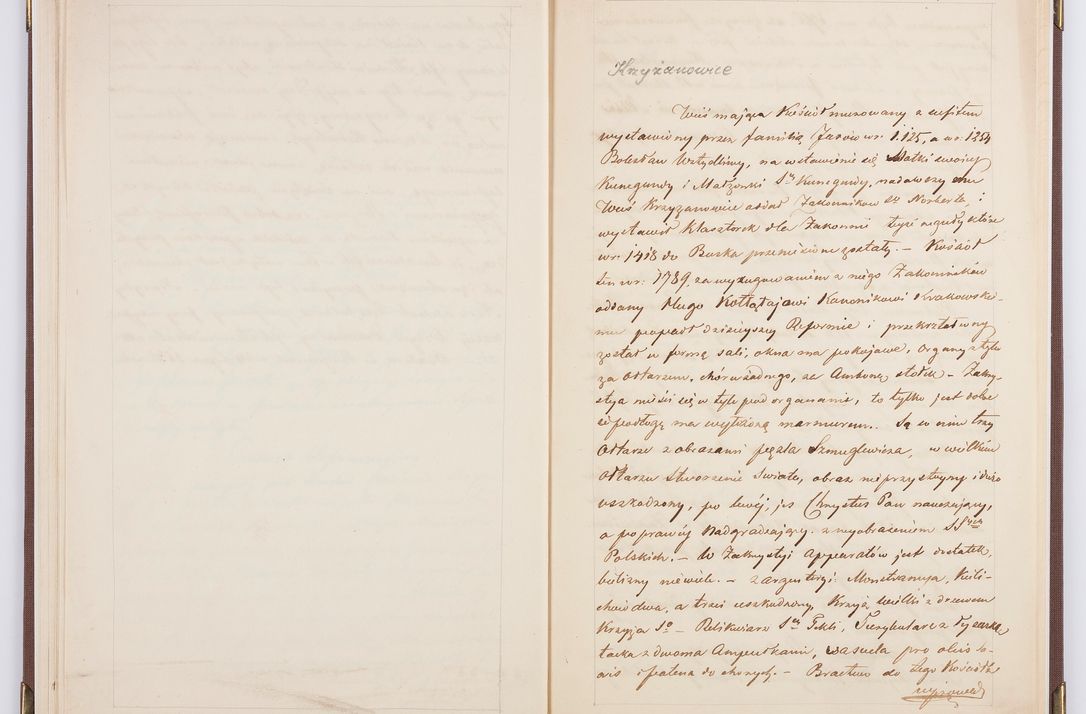 Krzyżanowice
Wieś mająca Kościół murowany z sufitem
wystawiony przez familią Jaxów w r. 1.125, a w r. 1254
Bolesław Wstydliwy, na wstawienie się Matki swojej
Kunegundy i Małżonki Sw Kunegudy, nadawszy
Wieś Krzyzanowice oddał Zakonnikom Norberta, i
wystawił Klasztorek dla Zakonnic tejże reguły które
w r: 1418 do Buska przeniesione zostały. – Kościół
ten w r: 1789, za wyrugowaniem z niego Zakonników
oddany Hugo Kołłątajowi Kanonikowi Krakowskie-
mu popadł dzisiejszej Reformie i przekształcony
został w formę sali, okna ma pokojowe, organy z tyłu
za Ołtarzem, chóru żadnego, za Ambonę stołek – Zakry-
stya mieści się w tyle pod organami, to tylko jest dobre
iż podłogę ma wyłożoną marmurem. Są w nim trzy
Ołtarze z obrazami pęzla Szmuglewicza, w wielkim
Ołtarzu Stworzenie Świata, obraz nieprzystojny i dużo
uszkodzony, po lewéj, jes Chrystus Pan nauczający,
a po prawéj Nadgradzający z wyobrażeniem SS
Polskich. – W Zakrystyi apparatów jest dostatek,
bielizny niewiele. – z argenteryi: Monstrancya, Kieli-
chów dwa, a trzeci uszkodzony, Krzyż wielki z drzewem
Krzyża So – Relikwiarz Sej Tekli, Turybularz z łyżeczką
tacka z dwoma Ampułkami, vascula pro oleis sa-
cris i patena do chorych. – Bractwo do tego Kościoła
wprowadz